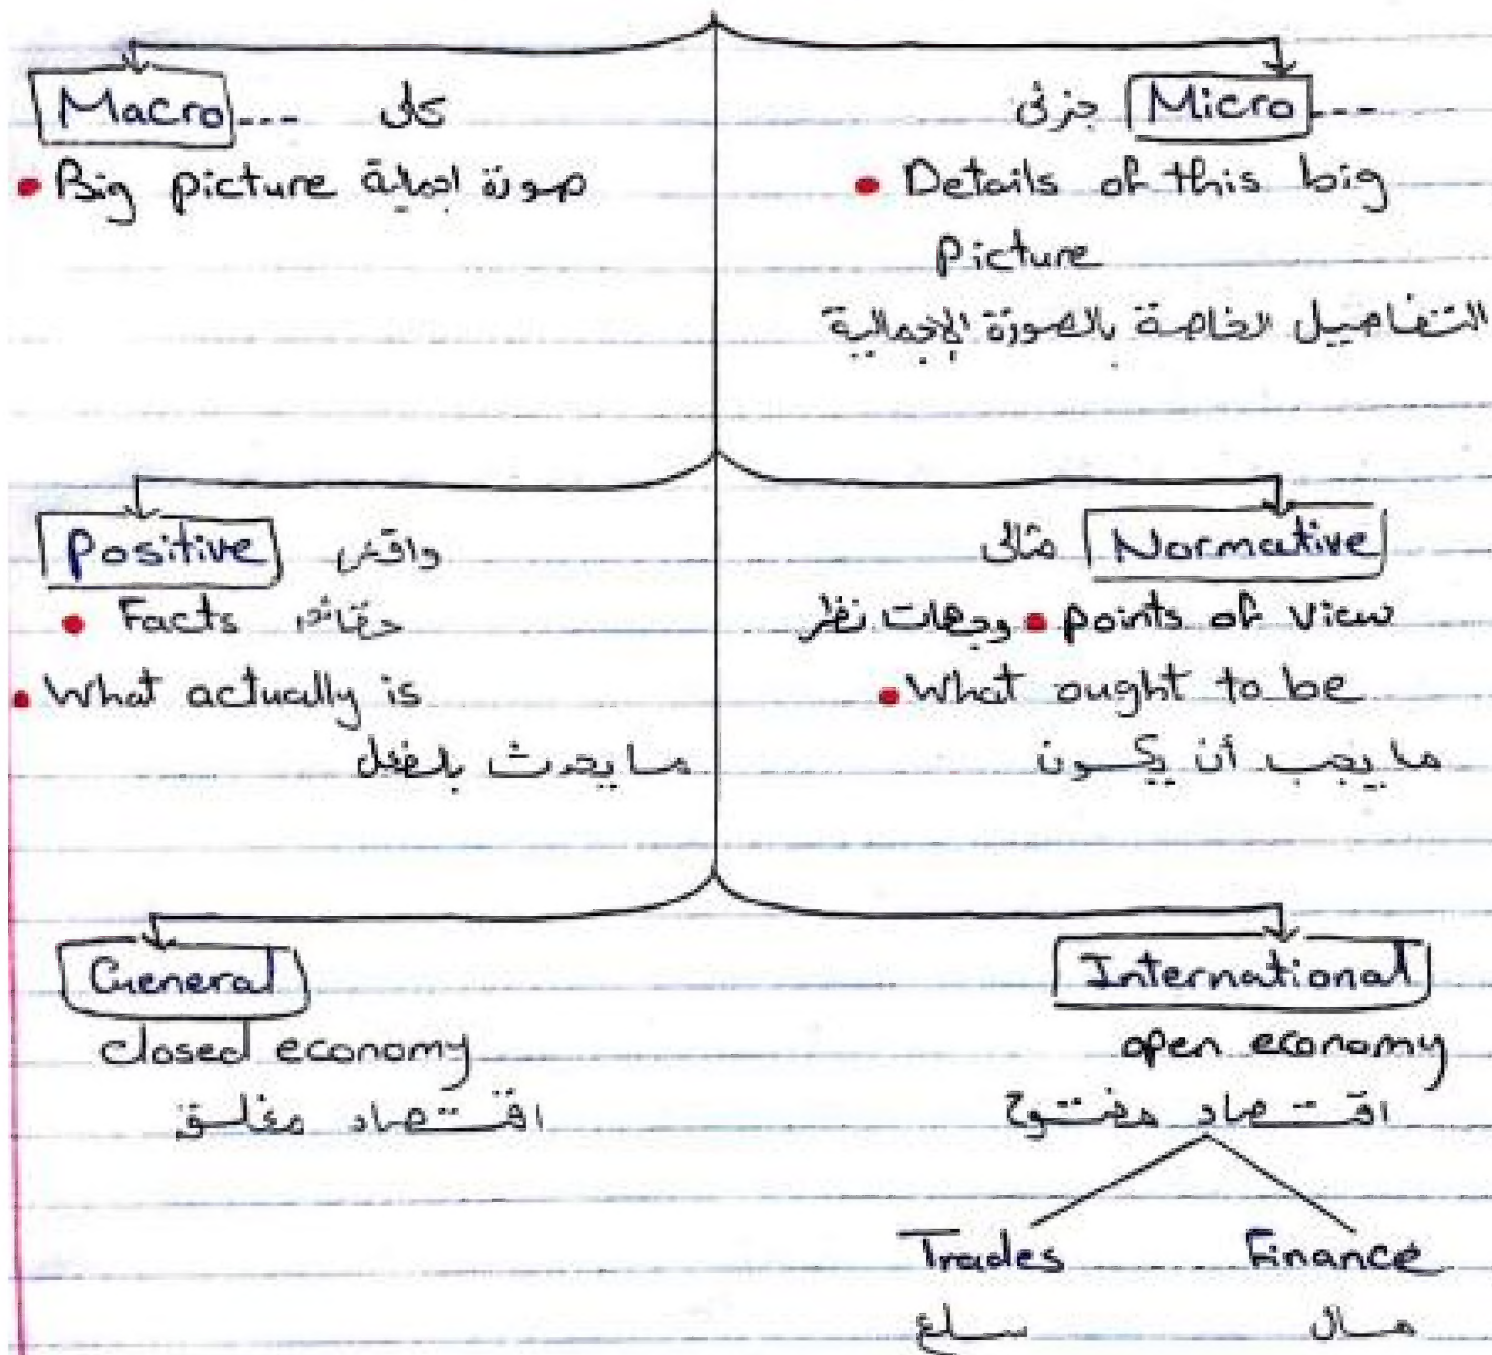 Macro --- كلى
• Big picture صورة اجمالية
جزئى Micro ---
• Details of this big
Picture
التفاصيل الخاصة بالصورة الإجمالية
Positive واقعى
• Facts حقائق
• What actually is
ما يحدث بالفعل
مثالى Normative
وجهات نظر • points of view
• What ought to be
ما يجب أن يكون
General
closed economy
اقتصاد مغلق
International
open economy
اقتصاد مفتوح
Trades Finance
سلع مال